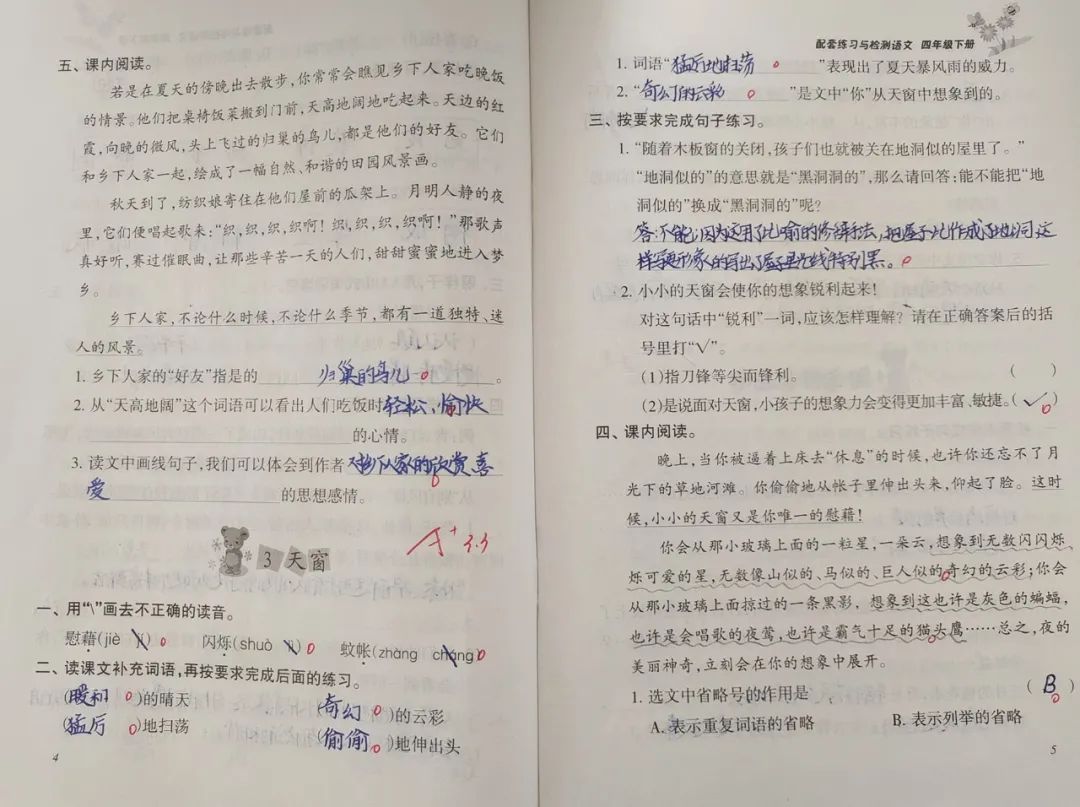 五、课内阅读。
若是在夏天的傍晚出去散步,你常常会瞧见乡下人家吃晚饭
的情景。他们把桌椅饭菜搬到门前,天高地阔地吃起来。天边的红
霞,向晚的微风,头上飞过的归巢的鸟儿,都是他们的好友。它们
和乡下人家一起,绘成了一幅自然、和谐的田园风景画。
秋天到了,纺织娘寄住在他们屋前的瓜架上。月明人静的夜
里,它们便唱起歌来:“织,织,织,织啊!织,织,织,织啊!”那歌声
真好听,赛过催眠曲,让那些辛苦一天的人们,甜甜蜜蜜地进入梦
乡。
乡下人家,不论什么时候,不论什么季节,都有一道独特、迷
人的风景。
1. 乡下人家的“好友”指的是 归巢的鸟儿 。
2. 从“天高地阔”这个词语可以看出人们吃饭时 轻松、愉快
的心情。
3. 读文中画线句子,我们可以体会到作者 对乡下人家的欣赏喜
爱 的思想感情。
A+ 3.3
3 天窗
一、用“\”画去不正确的读音。
慰藉(jiè jí) 闪烁(shuò lì) 蚊帐(zhàng chàng)
二、读课文补充词语,再按要求完成后面的练习。
(暖和)的晴天 (奇幻)的云彩
(猛厉)地扫荡 (偷偷)地伸出头
4
配套练习与检测语文 四年级下册
1. 词语“ 猛厉地扫荡 ”表现出了夏天暴风雨的威力。
2. “ 奇幻的云彩 ”是文中“你”从天窗中想象到的。
三、按要求完成句子练习。
1. “随着木板窗的关闭,孩子们也就被关在地洞似的屋里了。”
“地洞似的”的意思就是“黑洞洞的”,那么请回答:能不能把“地
洞似的”换成“黑洞洞的”呢?
答:不能,因为运用了比喻的修辞手法,把屋子比作成了地洞,这
样更形象的写出了屋子里光线特别黑。
2. 小小的天窗会使你的想象锐利起来!
对这句话中“锐利”一词,应该怎样理解?请在正确答案后的括
号里打“√”。
(1)指刀锋等尖而锋利。 ( )
(2)是说面对天窗,小孩子的想象力会变得更加丰富、敏捷。(√)
四、课内阅读。
晚上,当你被逼着上床去“休息”的时候,也许你还忘不了月
光下的草地河滩。你偷偷地从帐子里伸出头来,仰起了脸。这时
候,小小的天窗又是你唯一的慰藉!
你会从那小玻璃上面的一粒星,一朵云,想象到无数闪闪烁
烁可爱的星,无数像山似的、马似的、巨人似的奇幻的云彩;你会
从那小玻璃上面掠过的一条黑影,想象到这也许是灰色的蝙蝠,
也许是会唱歌的夜莺,也许是霸气十足的猫头鹰……总之,夜的
美丽神奇,立刻会在你的想象中展开。
1. 选文中省略号的作用是 (B)
A. 表示重复词语的省略 B. 表示列举的省略
5